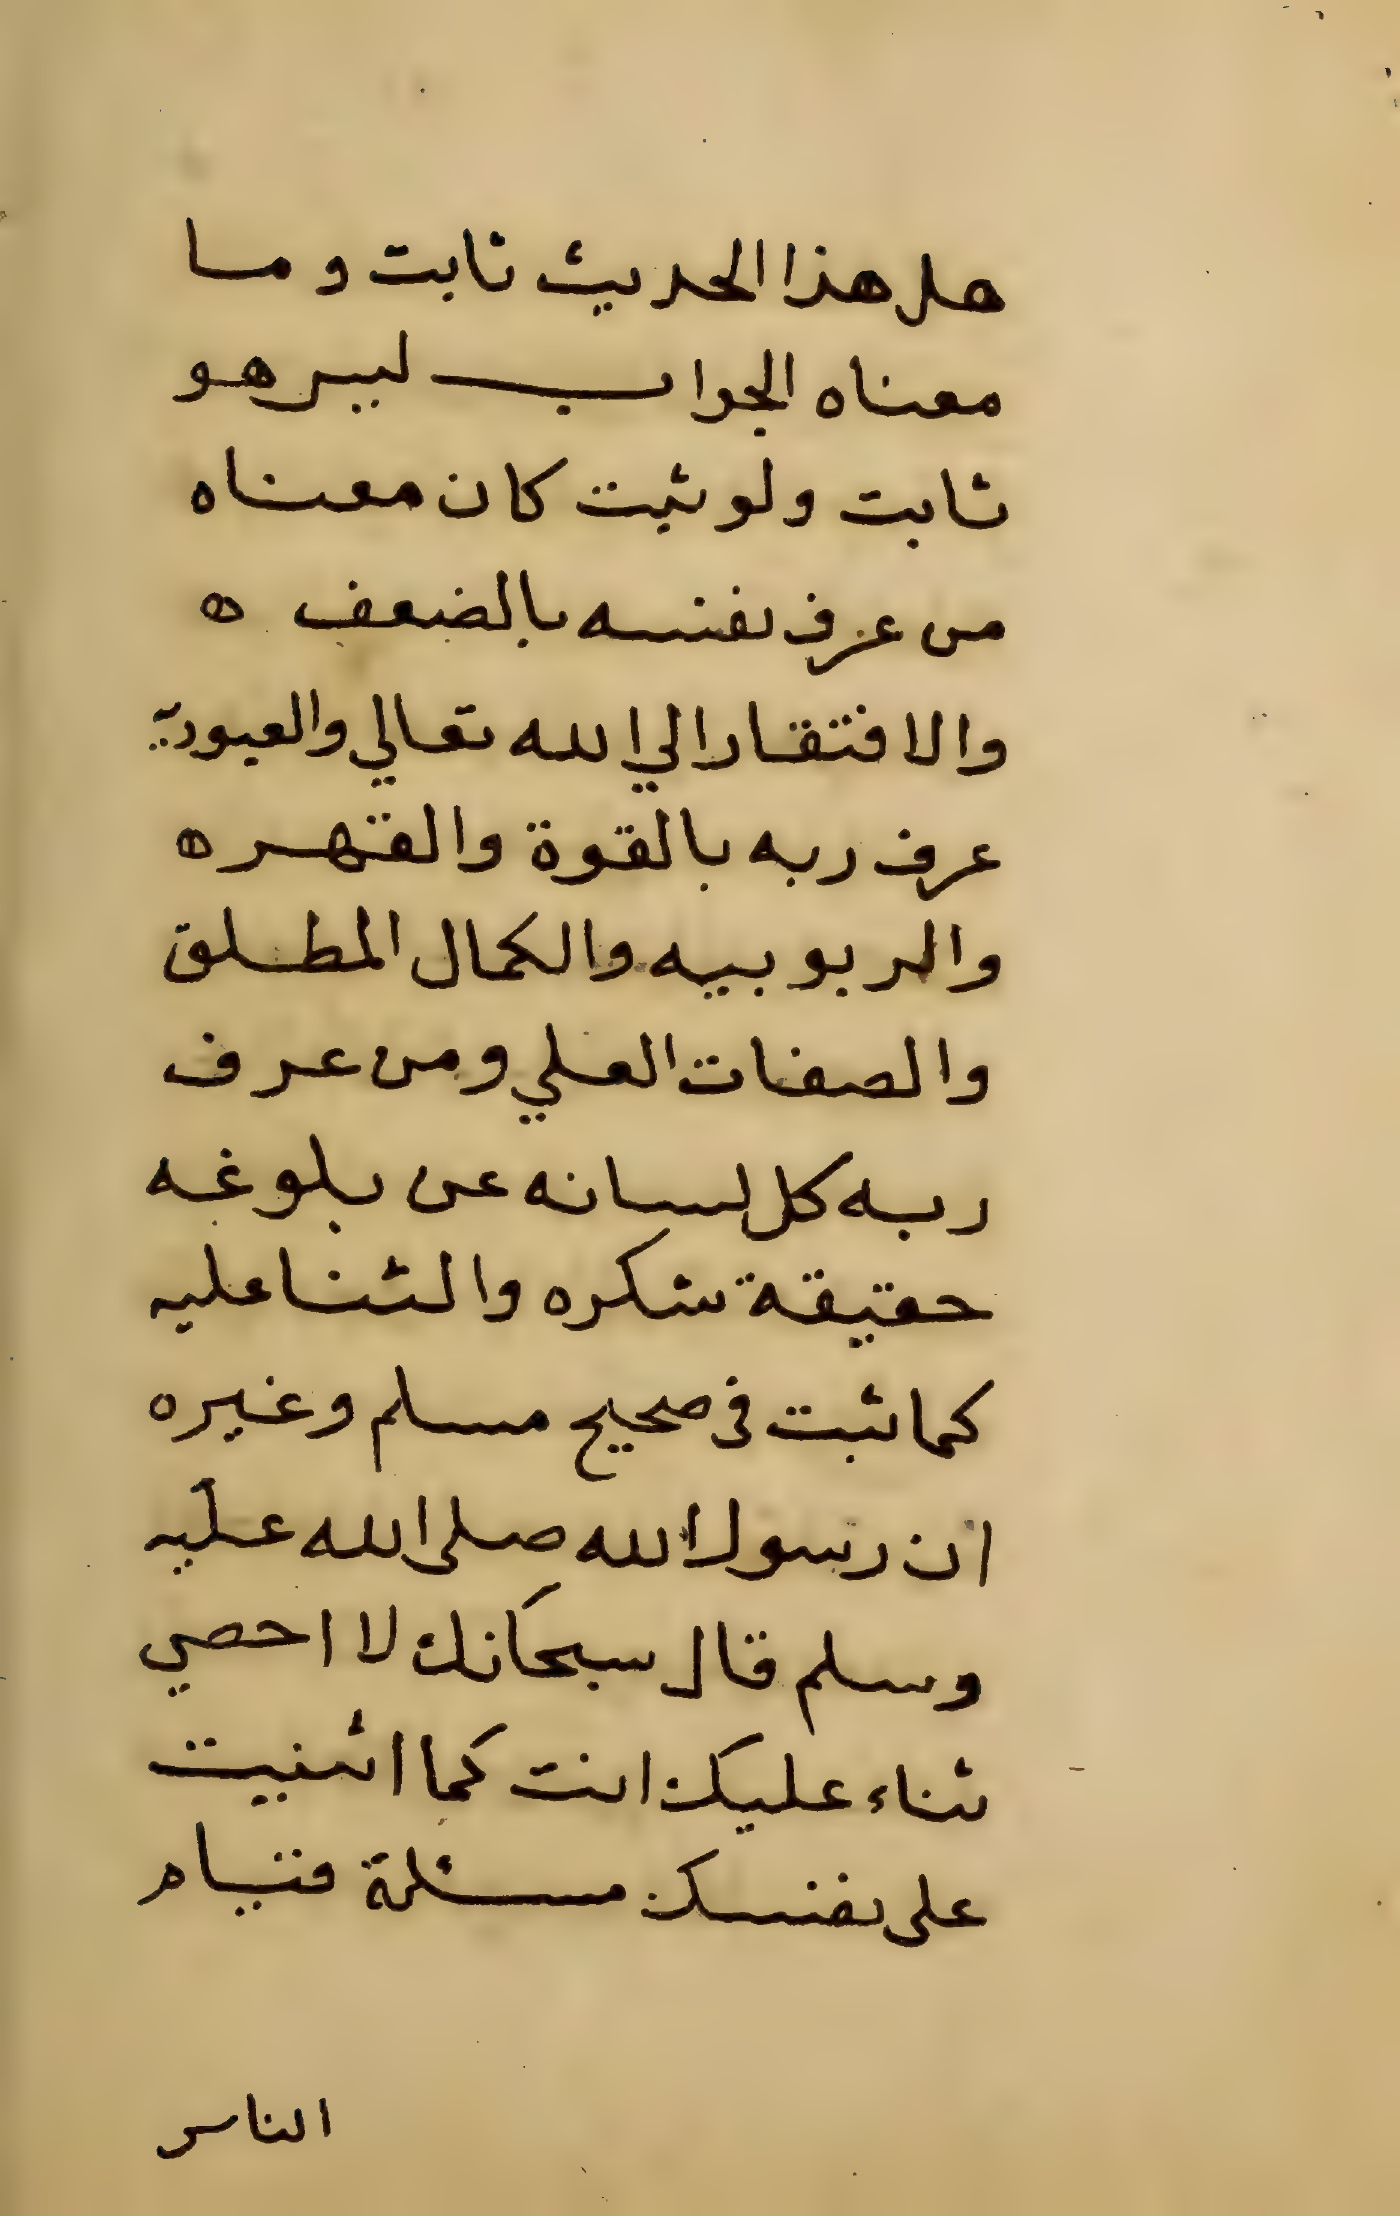 هل هذا الحديث ثابت وما
معناه الجواب ليس هو
ثابت ولو ثبت كان معناه
من عرف نفسه بالضعف ه
والافتقار الي الله تعالي والعبودية
عرف ربه بالقوة والقهر ه
والربوبيه والكمال المطلق
والصفات العلي ومن عرف
ربه كل لسانه عن بلوغه
حقيقة شكره والثنا عليه
كما ثبت في صحيح مسلم وغيره
ان رسول الله صلى الله عليه
وسلم قال سبحانك لا احصي
ثناء عليك انت كما اثنيت
على نفسك مسئلة قيام
الناس